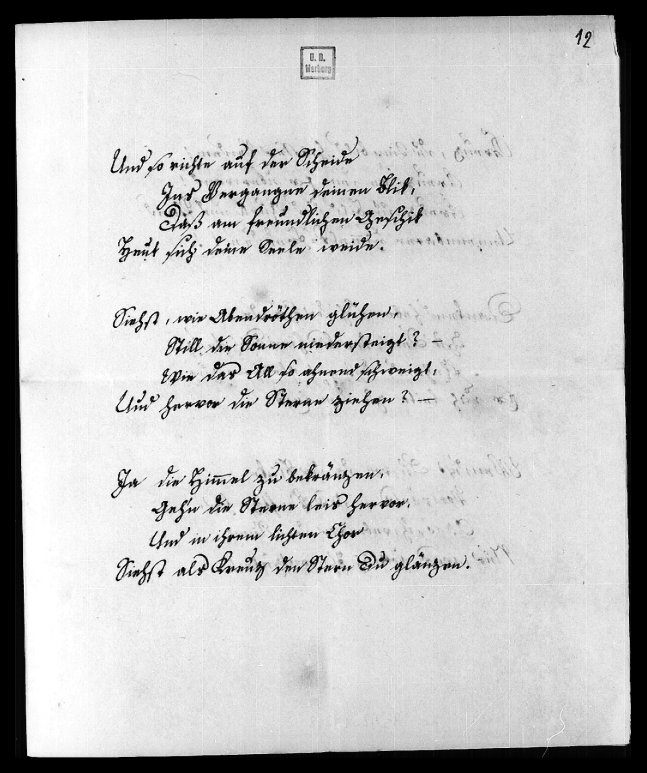 12
U. B.
Marburg
Und so richte auf der Scheide
Ins Vergangne deinen Blik,
Daß am freundlichen Geschik
Heut sich deine Seele weide.
Siehst, wie Abendröthen glühen,
Still die Sonne niedersteigt? –
Wie das All so ahnend schweigt,
Und hervor die Sterne ziehen? –
Ja die Himmel zu bekränzen,
Gehn die Sterne leis hervor,
Und in ihrem lichten Chor
Siehst als Kreutz den Stern Du glänzen.